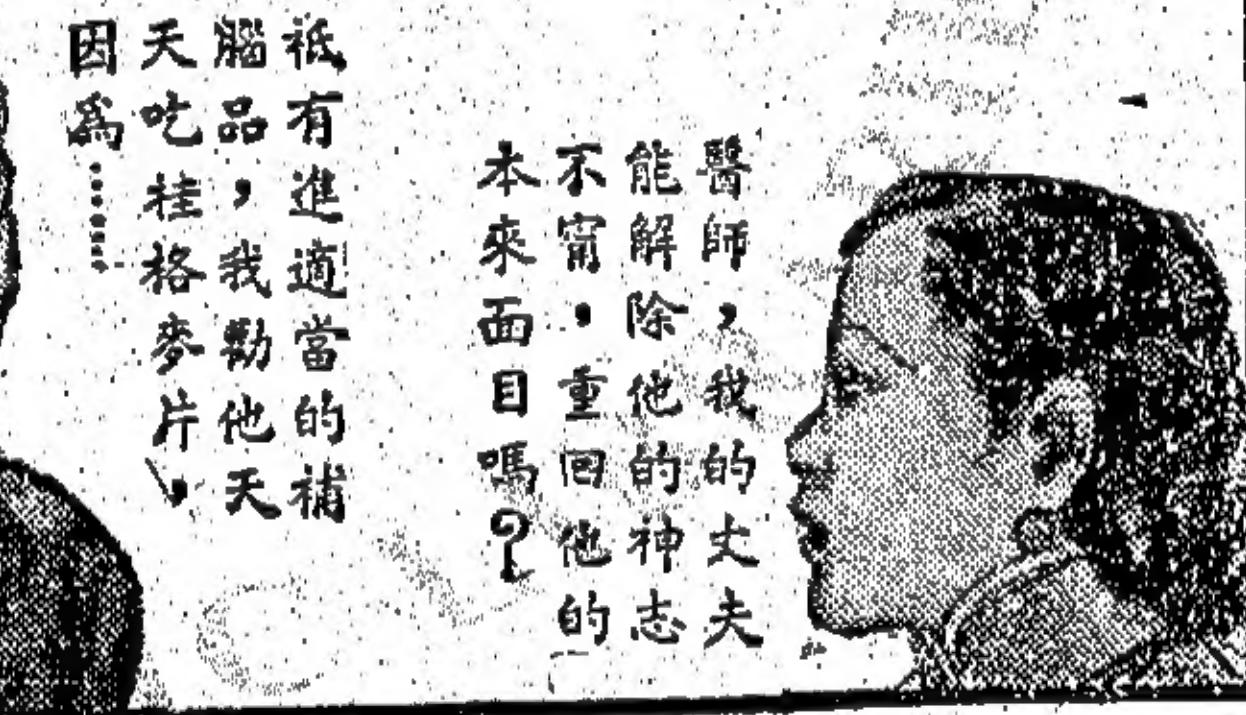 醫師，我的丈夫
能解除他的神志
不甯，重回他的
本來面目嗎？
祗有進適當的補
腦品，我勸他天
天吃桂格麥片，
因為……